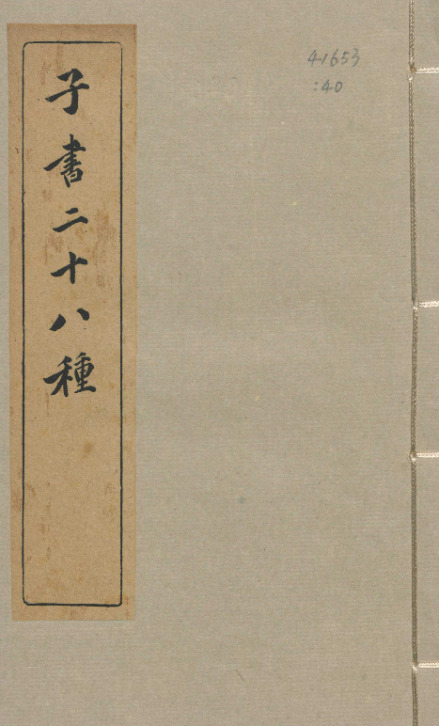 子書二十八種
41653
:40